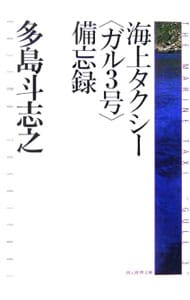 海上タクシー
〈ガル3号〉
備忘録
多島斗志之
THE MARINE TAXI "GULL 3"
創元推理文庫